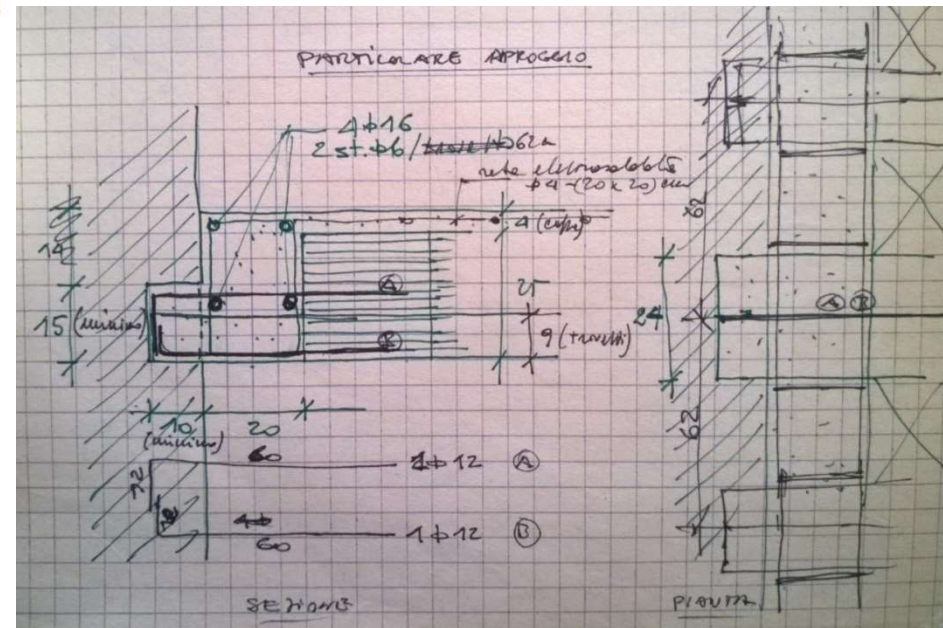 PARTICOLARE APPOGGIO
4ϕ16
2 st. ϕ6/62cm
rete elettrosaldata
ϕ4-(20x20)cm
4 (cappa)
14
15 (minimo)
A
B
25
9 (travetti)
10
(minimo)
20
60
12
1ϕ12 A
12
60
1ϕ12 B
SEZIONE
62
24
A B
62
PIANTA